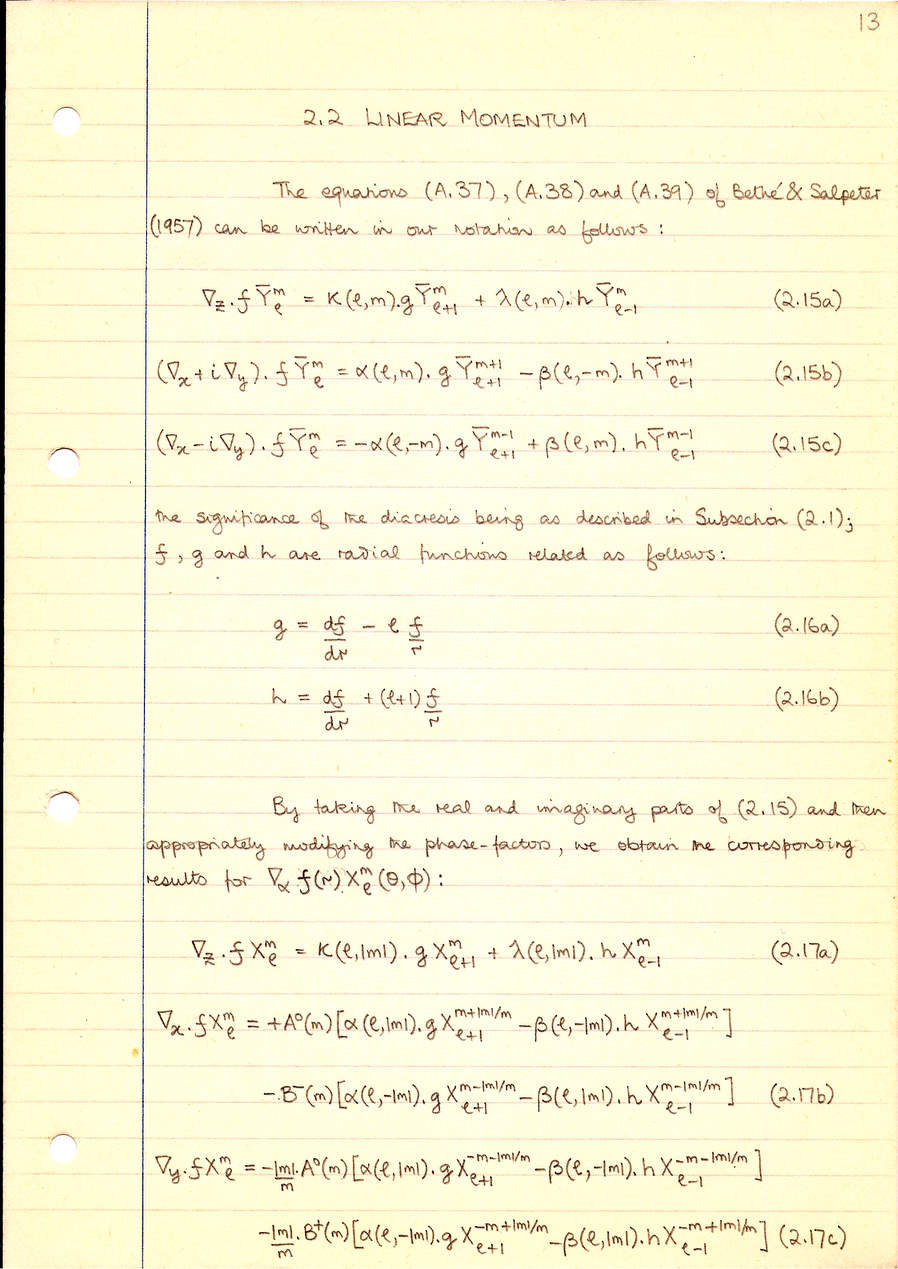 13
2.2 LINEAR MOMENTUM
The equations (A.37), (A.38) and (A.39) of Bethé & Salpeter
(1957) can be written in our notation as follows:
∇_z . f Ȳ_ℓ^m = K(ℓ,m).g Ȳ_{ℓ+1}^m + λ(ℓ,m).h Ȳ_{ℓ-1}^m (2.15a)
(∇_x + i∇_y). f Ȳ_ℓ^m = α(ℓ,m). g Ȳ_{ℓ+1}^{m+1} - β(ℓ,-m). h Ȳ_{ℓ-1}^{m+1} (2.15b)
(∇_x - i∇_y). f Ȳ_ℓ^m = -α(ℓ,-m). g Ȳ_{ℓ+1}^{m-1} + β(ℓ,m). h Ȳ_{ℓ-1}^{m-1} (2.15c)
the significance of the diacresis being as described in Subsection (2.1);
f, g and h are radial functions related as follows:
g = df/dr - ℓ f/r (2.16a)
h = df/dr + (ℓ+1) f/r (2.16b)
By taking the real and imaginary parts of (2.15) and then
appropriately modifying the phase-factors, we obtain the corresponding
results for ∇_α f(r) X_ℓ^m (θ,ϕ):
∇_z . f X_ℓ^m = K(ℓ,|m|). g X_{ℓ+1}^m + λ(ℓ,|m|). h X_{ℓ-1}^m (2.17a)
∇_x . f X_ℓ^m = +A°(m)[α(ℓ,|m|). g X_{ℓ+1}^{m+|m|/m} - β(ℓ,-|m|). h X_{ℓ-1}^{m+|m|/m}]
-.B⁻(m)[α(ℓ,-|m|). g X_{ℓ+1}^{m-|m|/m} - β(ℓ,|m|). h X_{ℓ-1}^{m-|m|/m}] (2.17b)
∇_y . f X_ℓ^m = -|m|/m . A°(m)[α(ℓ,|m|). g X_{ℓ+1}^{-m-|m|/m} - β(ℓ,-|m|). h X_{ℓ-1}^{-m-|m|/m}]
-|m|/m . B⁺(m)[α(ℓ,-|m|). g X_{ℓ+1}^{-m+|m|/m} - β(ℓ,|m|). h X_{ℓ-1}^{-m+|m|/m}] (2.17c)